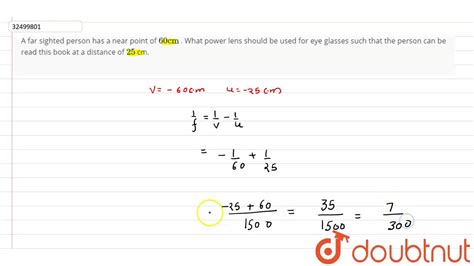 32499801
A far sighted person has a near point of 60cm . What power lens should be used for eye glasses such that the person can be
read this book at a distance of 25 cm.
V= - 60cm u= -25 cm
1/f = 1/v - 1/u
= - 1/60 + 1/25
-25 + 60 / 1500 = 35 / 1500 = 7 / 300
doubtnut